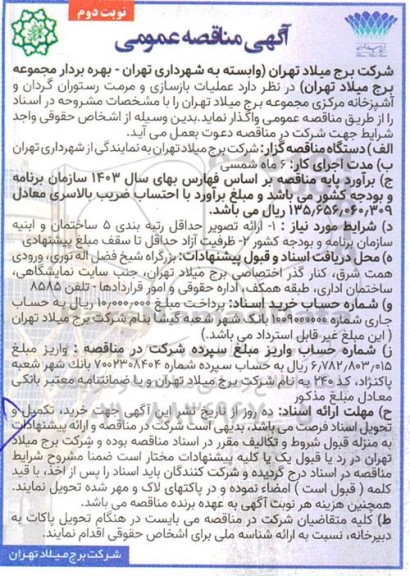 نوبت دوم
آگهی مناقصه عمومی
شرکت برج میلاد تهران (وابسته به شهرداری تهران - بهره بردار مجموعه
برج میلاد تهران) در نظر دارد عملیات بازسازی و مرمت رستوران گردان و
آشپزخانه مرکزی مجموعه برج میلاد تهران را با مشخصات مشروحه در اسناد
را از طریق مناقصه عمومی واگذار نماید.بدین وسیله از اشخاص حقوقی واجد
شرایط جهت شرکت در مناقصه دعوت بعمل می آید.
الف) دستگاه مناقصه گزار: شرکت برج میلاد تهران به نمایندگی از شهرداری تهران
ب) مدت اجرای کار: ۶ ماه شمسی
ج) برآورد پایه مناقصه بر اساس فهارس بهای سال ۱۴۰۳ سازمان برنامه
و بودجه کشور می باشد و مبلغ برآورد با احتساب ضریب بالاسری معادل
۱۳۵,۶۵۶,۰۶۰,۳۰۹ ریال می باشد.
د) شرایط مورد نیاز : ۱- ارائه تصویر حداقل رتبه بندی ۵ ساختمان و ابنیه
سازمان برنامه و بودجه کشور ۲- ظرفیت آزاد حداقل تا سقف مبلغ پیشنهادی
ه) محل دریافت اسناد و قبول پیشنهادات: بزرگراه شیخ فضل اله نوری، ورودی
همت شرق، کنار گذر اختصاصی برج میلاد تهران، جنب سایت نمایشگاهی،
ساختمان اداری، طبقه همکف، اداره حقوقی و امور قراردادها - تلفن ۸۵۸۵
و) شماره حساب خرید اسناد: پرداخت مبلغ ۱۰,۰۰۰,۰۰۰ ریال به حساب
جاری شماره بانک شهر شعبه کیشا بنام شرکت برج میلاد تهران
( این مبلغ غیر قابل استرداد می باشد.)
ز) شماره حساب واریز مبلغ سپرده شرکت در مناقصه : واریز مبلغ
۶,۷۸۲,۸۰۳,۰۱۵ ریال به حساب سپرده شماره ۷۰۰۲۳۰۸۴۰۴ بانک شهر شعبه
پاکنژاد، کد ۲۴۰ به نام شرکت برج میلاد تهران و یا ضمانتنامه معتبر بانکی
معادل مبلغ مذکور
ح) مهلت ارائه اسناد: ۱۰ روز از تاریخ نشر این آگهی جهت خرید، تکمیل و
تحویل اسناد فرصت می باشد، بدیهی است شرکت در مناقصه و ارائه پیشنهادات
به منزله قبول شروط و تکالیف مقرر در اسناد مناقصه بوده و شرکت برج میلاد
تهران در رد یا قبول یک یا کلیه پیشنهادات مختار است ضمناً مشروح شرایط
مناقصه در اسناد درج گردیده و شرکت کنندگان باید اسناد را پس از اخذ، با قید
کلمه ( قبول است ) امضاء نموده و در پاکتهای لاک و مهر شده تحویل نمایند.
همچنین هزینه هر نوبت آگهی به عهده برنده مناقصه می باشد.
ط) کلیه متقاضیان شرکت در مناقصه می بایست در هنگام تحویل پاکات به
دبیرخانه، نسبت به ارائه شناسه ملی برای اشخاص حقوقی اقدام نمایند.
شرکت برج میلاد تهران